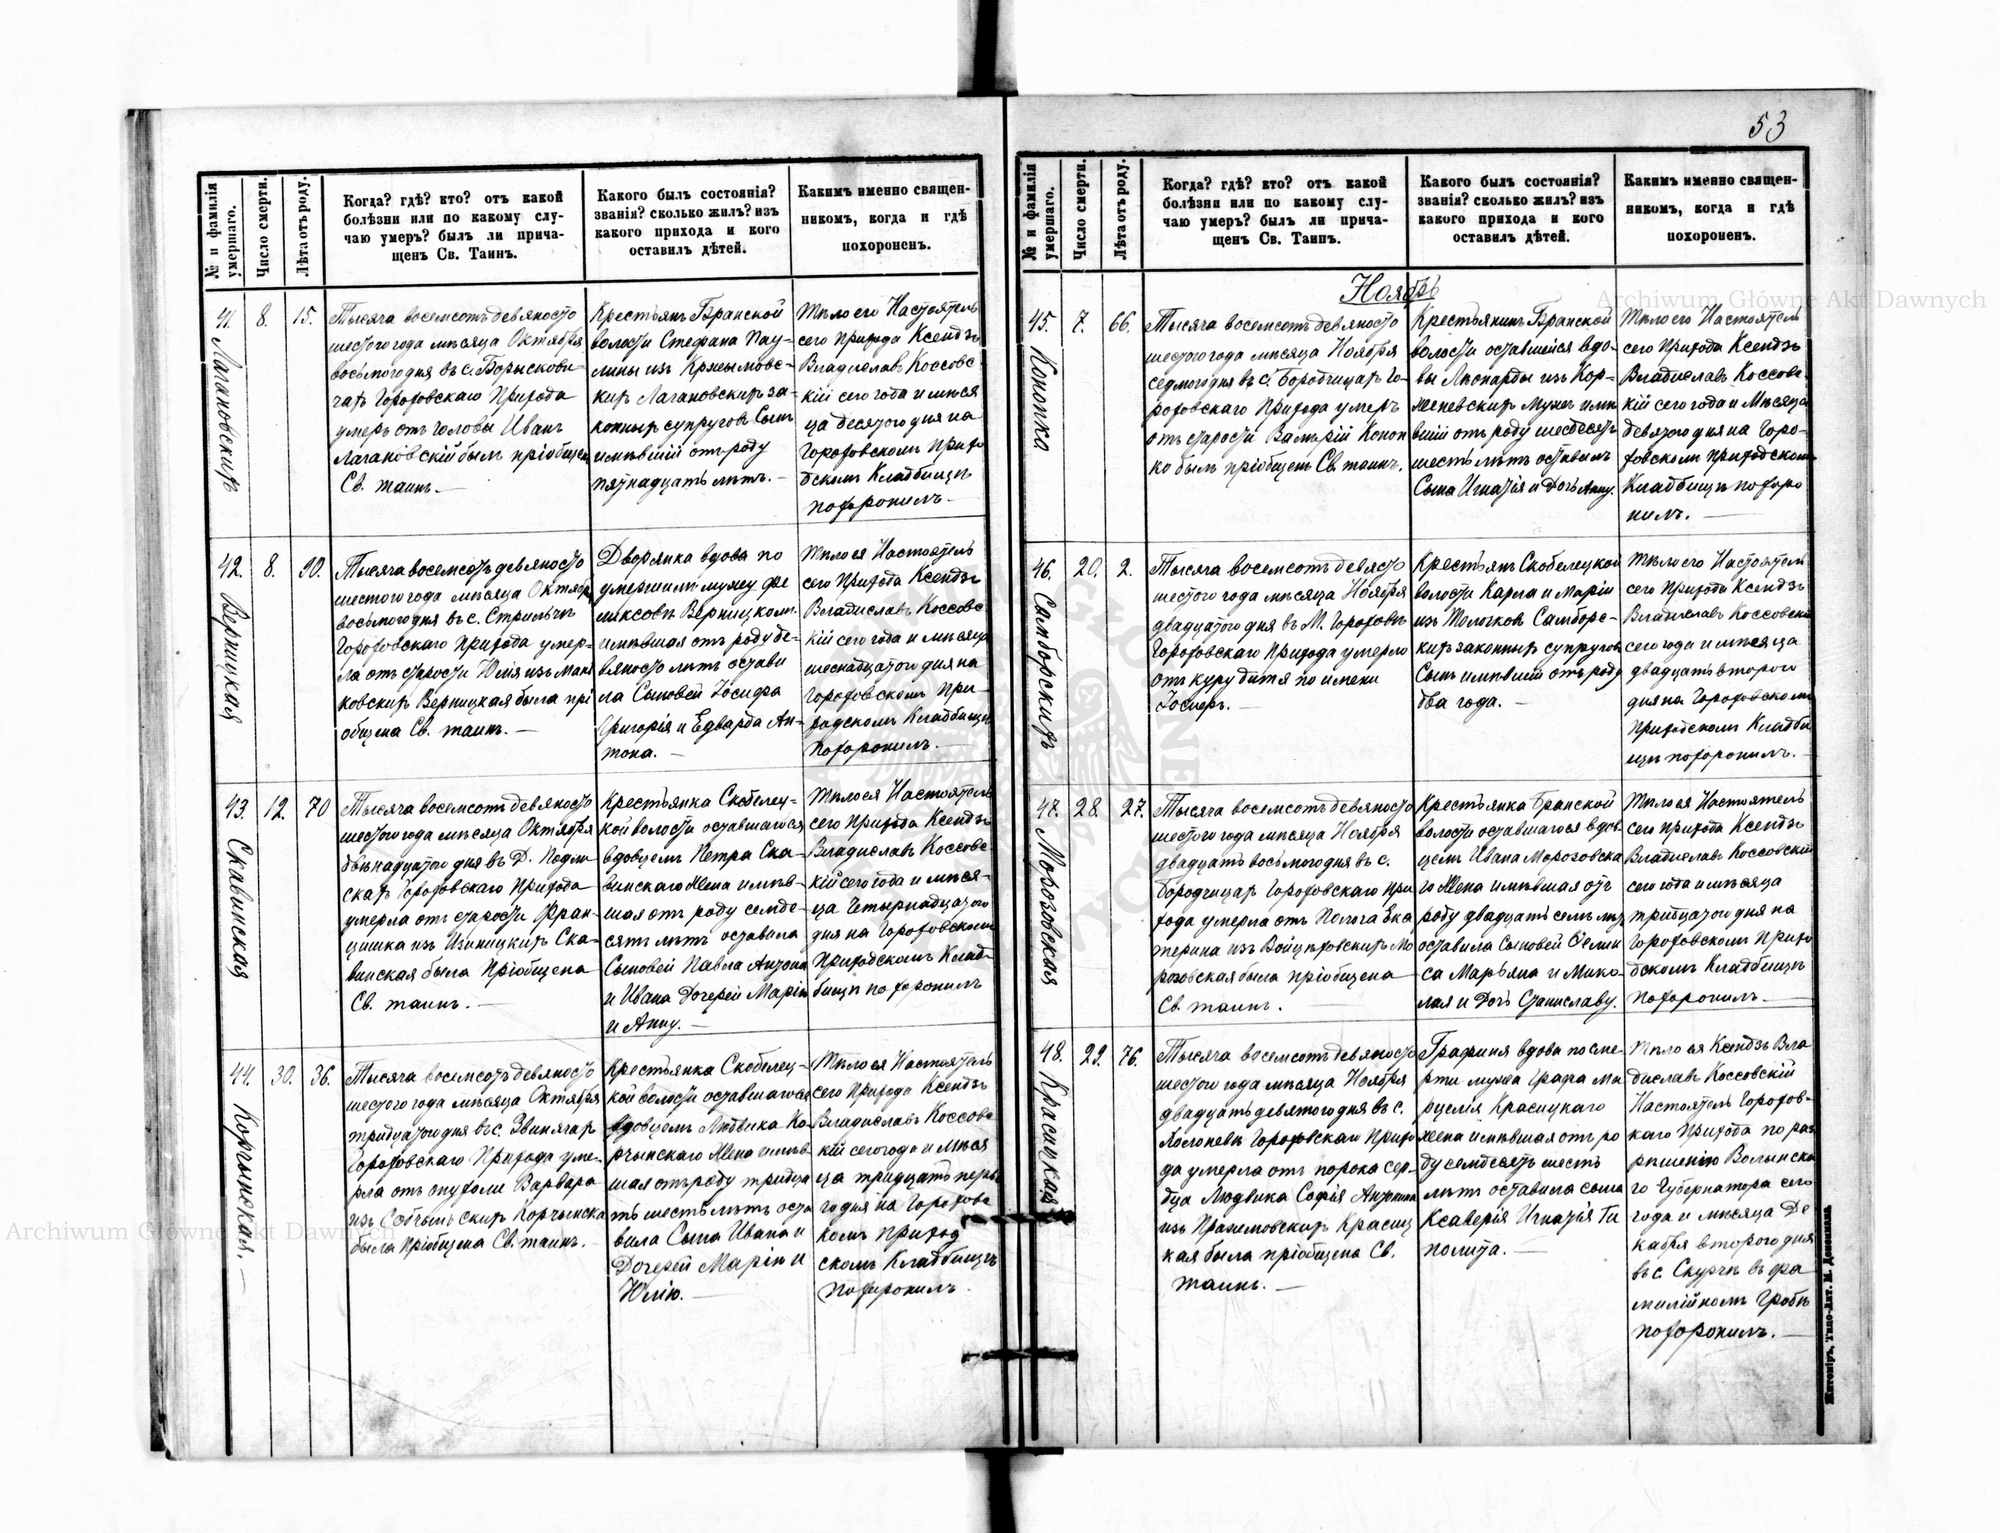 53
№ и фамилія умершаго.
Число смерти.
Лѣта отъ роду.
Когда? гдѣ? кто? отъ какой
болѣзни или по какому слу-
чаю умеръ? былъ ли прича-
щенъ Св. Таинъ.
Какого былъ состоянія?
званія? сколько жилъ? изъ
какого прихода и кого
оставилъ дѣтей.
Какимъ именно священ-
никомъ, когда и гдѣ
похороненъ.
41. 8. 15.
Лагановскихъ
Тысяча восемсотъ девяносто
шестого года мѣсяца Октября
восьмого дня въ с. Борыскови-
чахъ Гороховскаго Прихода
умеръ отъ головы Иванъ
Лагановскій былъ пріобщен
Св. таинъ. —
Крестьянъ Бранской
волости Стефана Пау-
лины изъ Кржымовс-
кихъ Лагановскихъ за-
конныхъ супруговъ Сынъ
имѣвшій отъ роду
пятнадцать лѣтъ. —
Тѣло его Настоятель
сего Прихода Ксендзъ
Владиславъ Коссовс-
кій сего года и мѣся
ца десятого дня на
Гороховскомъ Прихо
дскомъ Кладбищѣ
похоронилъ. —
42. 8. 90.
Верницкая
Тысяча восемсотъ девяносто
шестого года мѣсяца Октябр
восьмого дня въ с. Стрильчѣ
Гороховскаго Прихода умер-
ла отъ старости Юлія изъ
ковскихъ Верницкая была прі
общена Св. таинъ. —
Дворянка вдова по
умершимъ мужу Фе
ликсовѣ Верницкомъ
имѣвшая отъ роду де-
вяносто лѣтъ остави
ла Сыновей Іосифа
Григорія и Едварда Ан-
тона. —
Тѣло ея Настоятель
сего Прихода Ксендзъ
Владиславъ Коссовс-
кій сего года и мѣсяца
шеснадцатого дня на
Гороховскомъ При-
ходскомъ Кладбищѣ
похоронилъ. —
43. 12. 70
Скавинская
Тысяча восемсотъ девяносто
шестого года мѣсяца Октября
двѣнадцатого дня въ Д. Подли
скахъ Гороховскаго Прихода
умерла отъ старости Фран-
цишка изъ Ска-
винская была Пріобщена
Св. таинъ. —
Крестьянка Скобелец-
кой волости оставшагося
вдовцемъ Петра Ска-
винскаго Жена имѣв-
шая отъ роду семде-
сятъ лѣтъ оставила
Сыновей Павла Антона
и Ивана Дочерей Марію
и Анну. —
Тѣло ея Настоятель
сего Прихода Ксендзъ
Владиславъ Коссовс-
кій сего года и мѣся-
ца Четырнадцатого
дня на Гороховскомъ
Приходскомъ Клад-
бищѣ похоронилъ
44. 30. 36.
Корчынская. —
Тысяча восемсотъ девяносто
шестого года мѣсяца Октября
тридцатого дня въ с. Звинячах
Гороховскаго Прихода уме-
рла отъ опухоли Варвара
изъ Корчынска
была Пріобщена Св. таинъ. —
Крестьянка Скобелец-
кой волости оставшагося
вдовцемъ Людвика Ко-
рчынскаго Жена имѣв-
шая отъ роду тридца
ть шесть лѣтъ оста
вила Сына Ивана и
Дочерей Марію и
Юлію. —
Тѣло ея Настоятель
сего Прихода Ксендзъ
Владиславъ Коссовс
кій сего года и мѣся
ца тридцать перв
го дня на Горохов
комъ Приход
скомъ Кладбищѣ
похоронилъ.
№ и фамилія умершаго.
Число смерти.
Лѣта отъ роду.
Когда? гдѣ? кто? отъ какой
болѣзни или по какому слу-
чаю умеръ? былъ ли прича-
щенъ Св. Таинъ.
Какого былъ состоянія?
званія? сколько жилъ? изъ
какого прихода и кого
оставилъ дѣтей.
Какимъ именно священ-
никомъ, когда и гдѣ
похороненъ.
Ноябрь
45. 7. 66.
Конопка
Тысяча восемсотъ девяносто
шестого года мѣсяца Ноября
седмого дня въ с. Бородчицахъ Го-
роховскаго Прихода умеръ
отъ старости Валѣрій Коноп
ко былъ пріобщенъ Св. таинъ.
Крестьянинъ Бранской
волости оставшейся вдо-
вы Леонарды изъ Кор-
женевскихъ Мужъ имѣ
вшій отъ роду шесдесятъ
шесть лѣтъ оставилъ
Сына Игнатія и Дочь Анну.
Тѣло его Настоятель
сего Прихода Ксендзъ
Владиславъ Коссовс-
кій сего года и Мѣсяца
девятого дня на Горо-
ховскомъ приходскомъ
Кладбищѣ похоро
нилъ. —
46. 20. 2.
Самборскихъ
Тысяча восемсотъ девясто
шестого года мѣсяца Ноября
двадцатого дня въ М. Гороховѣ
Гороховскаго Прихода умерло
отъ куру дитя по имени
Іосифъ. —
Крестьянъ Скобелецкой
волости Карла и Маріи
изъ Толочковъ Самборс-
кихъ законныхъ супруговъ
Сынъ имѣвшій отъ роду
два года. —
Тѣло его Настоятель
сего Прихода Ксендзъ
Владиславъ Коссовскій
сего года и мѣсяца
двадцать второго
дня на Гороховскомъ
Приходскомъ Кладби
щѣ похоронилъ. —
47. 28. 27.
Морозовская
Тысяча восемсотъ девяносто
шестого года мѣсяца Ноября
двадцать восьмого дня въ с.
Бородчицахъ Гороховскаго При
хода умерла отъ Полога Ека
терина изъ Войцѣховскихъ Мо
розовская была пріобщена
Св. таинъ.
Крестьянка Бранской
волости оставшагося вдов
цемъ Ивана Морозовска
го Жена имѣвшая отъ
роду двадцать семь лѣтъ
оставила Сыновей Фелик
са Марьяна и Мико
лая и Дочь Станиславу.
Тѣло ея Настоятель
сего прихода Ксендзъ
Владиславъ Коссовскій
сего года и мѣсяца
тридцатого дня на
Гороховскомъ Прихо
дскомъ Кладбищѣ
Похоронилъ. —
48. 29. 76.
Красицкая
Тысяча восемсотъ девяносто
шестого года мѣсяца Ноября
двадцать девятого дня въ с.
Гороховскаго Прихо
да умерла отъ порока сер-
дца Людвика Софія Антонина
изъ Красиц
кая была пріобщена Св.
таинъ. —
Графиня вдова по сме-
рти мужа Графа Ма
рцелія Красицкаго
Жена имѣвшая отъ ро
ду семдесятъ шесть
лѣтъ оставила сына
Ксаверія Игнатія Ги
полита. —
Тѣло ея Ксендзъ Вла
диславъ Коссовскій
Настоятель Гороховс-
каго Прихода по раз
рѣшенію Волынска
го Губернатора сего
года и мѣсяца Де
кабря второго дня
въ с. Скурчѣ въ фа
милійномъ Гробѣ
похоронилъ. —
Житоміръ, Типо-Лит. М. Дененмана.
Archiwum Główne Akt Dawnych
Archiwum Główne Akt Dawnych